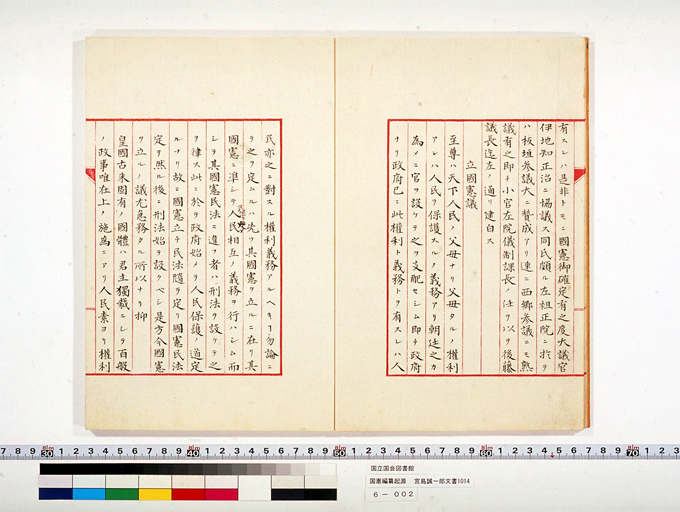 有スレハ是非トモニ國憲御確定有之度大議官
伊地知正治ニ協議ス同氏頗ル左袒正院ニ於テ
ハ板垣参議大ニ賛成アリ速ニ西郷参議ニモ熟
議有之即チ小官左院儀制課長ノ任ヲ以テ後藤
議長迄左ノ通リ建白ス
立國憲議
至尊ハ天下人民ノ父母ナリ父母タルノ權利
アレハ人民ヲ保護スルノ義務アリ朝廷之カ
為メニ官ヲ設ケテ之ヲ支配セシム即チ政府
ナリ政府已ニ此權利ト義務トヲ有スレハ人
民亦之ニ對スル權利義務アルヘキハ勿論ニ
テ之ヲ定ムルハ先ツ其國憲ヲ立ルニ在リ其
國憲ニ準シテ人民相互ノ義務ヲ行ハシム而
シテ其國憲民法ニ違フ者ハ刑法ヲ設ケテ之
ヲ律ス此ニ於テ政府始メテ人民保護ノ道定
ルナリ故ニ國憲立チ民法随テ定リ國憲民法
定テ然ル後ニ刑法始テ設クベシ是方今國憲
ヲ立ルノ議尤急務タル所以ナリ抑
皇國古来固有ノ國體ハ君主獨裁ニシテ百般
ノ政事唯在上ノ施為ニアリ人民素ヨリ權利
7 8 9 30 1 2 3 4 5 6 7 8 9 40 1 2 3 4 5 6 7 8 9 50 1 2 3 4 5 6 7 8 9 60 1 2 3 4 5 6 7 8 9 70 1 2 3
国立国会図書館
国憲編纂起源 宮島誠一郎文書1014
6-002